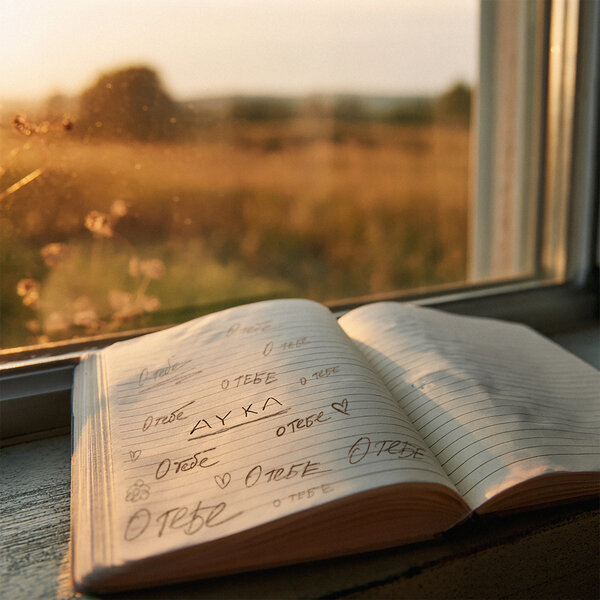 О тебе
О тебе
О тебе
О ТЕБЕ
О ТЕБЕ
О тебе
АУКА
О ТЕБЕ
О тебе
О ТЕБЕ
О тебе
О ТЕБЕ
О тебе